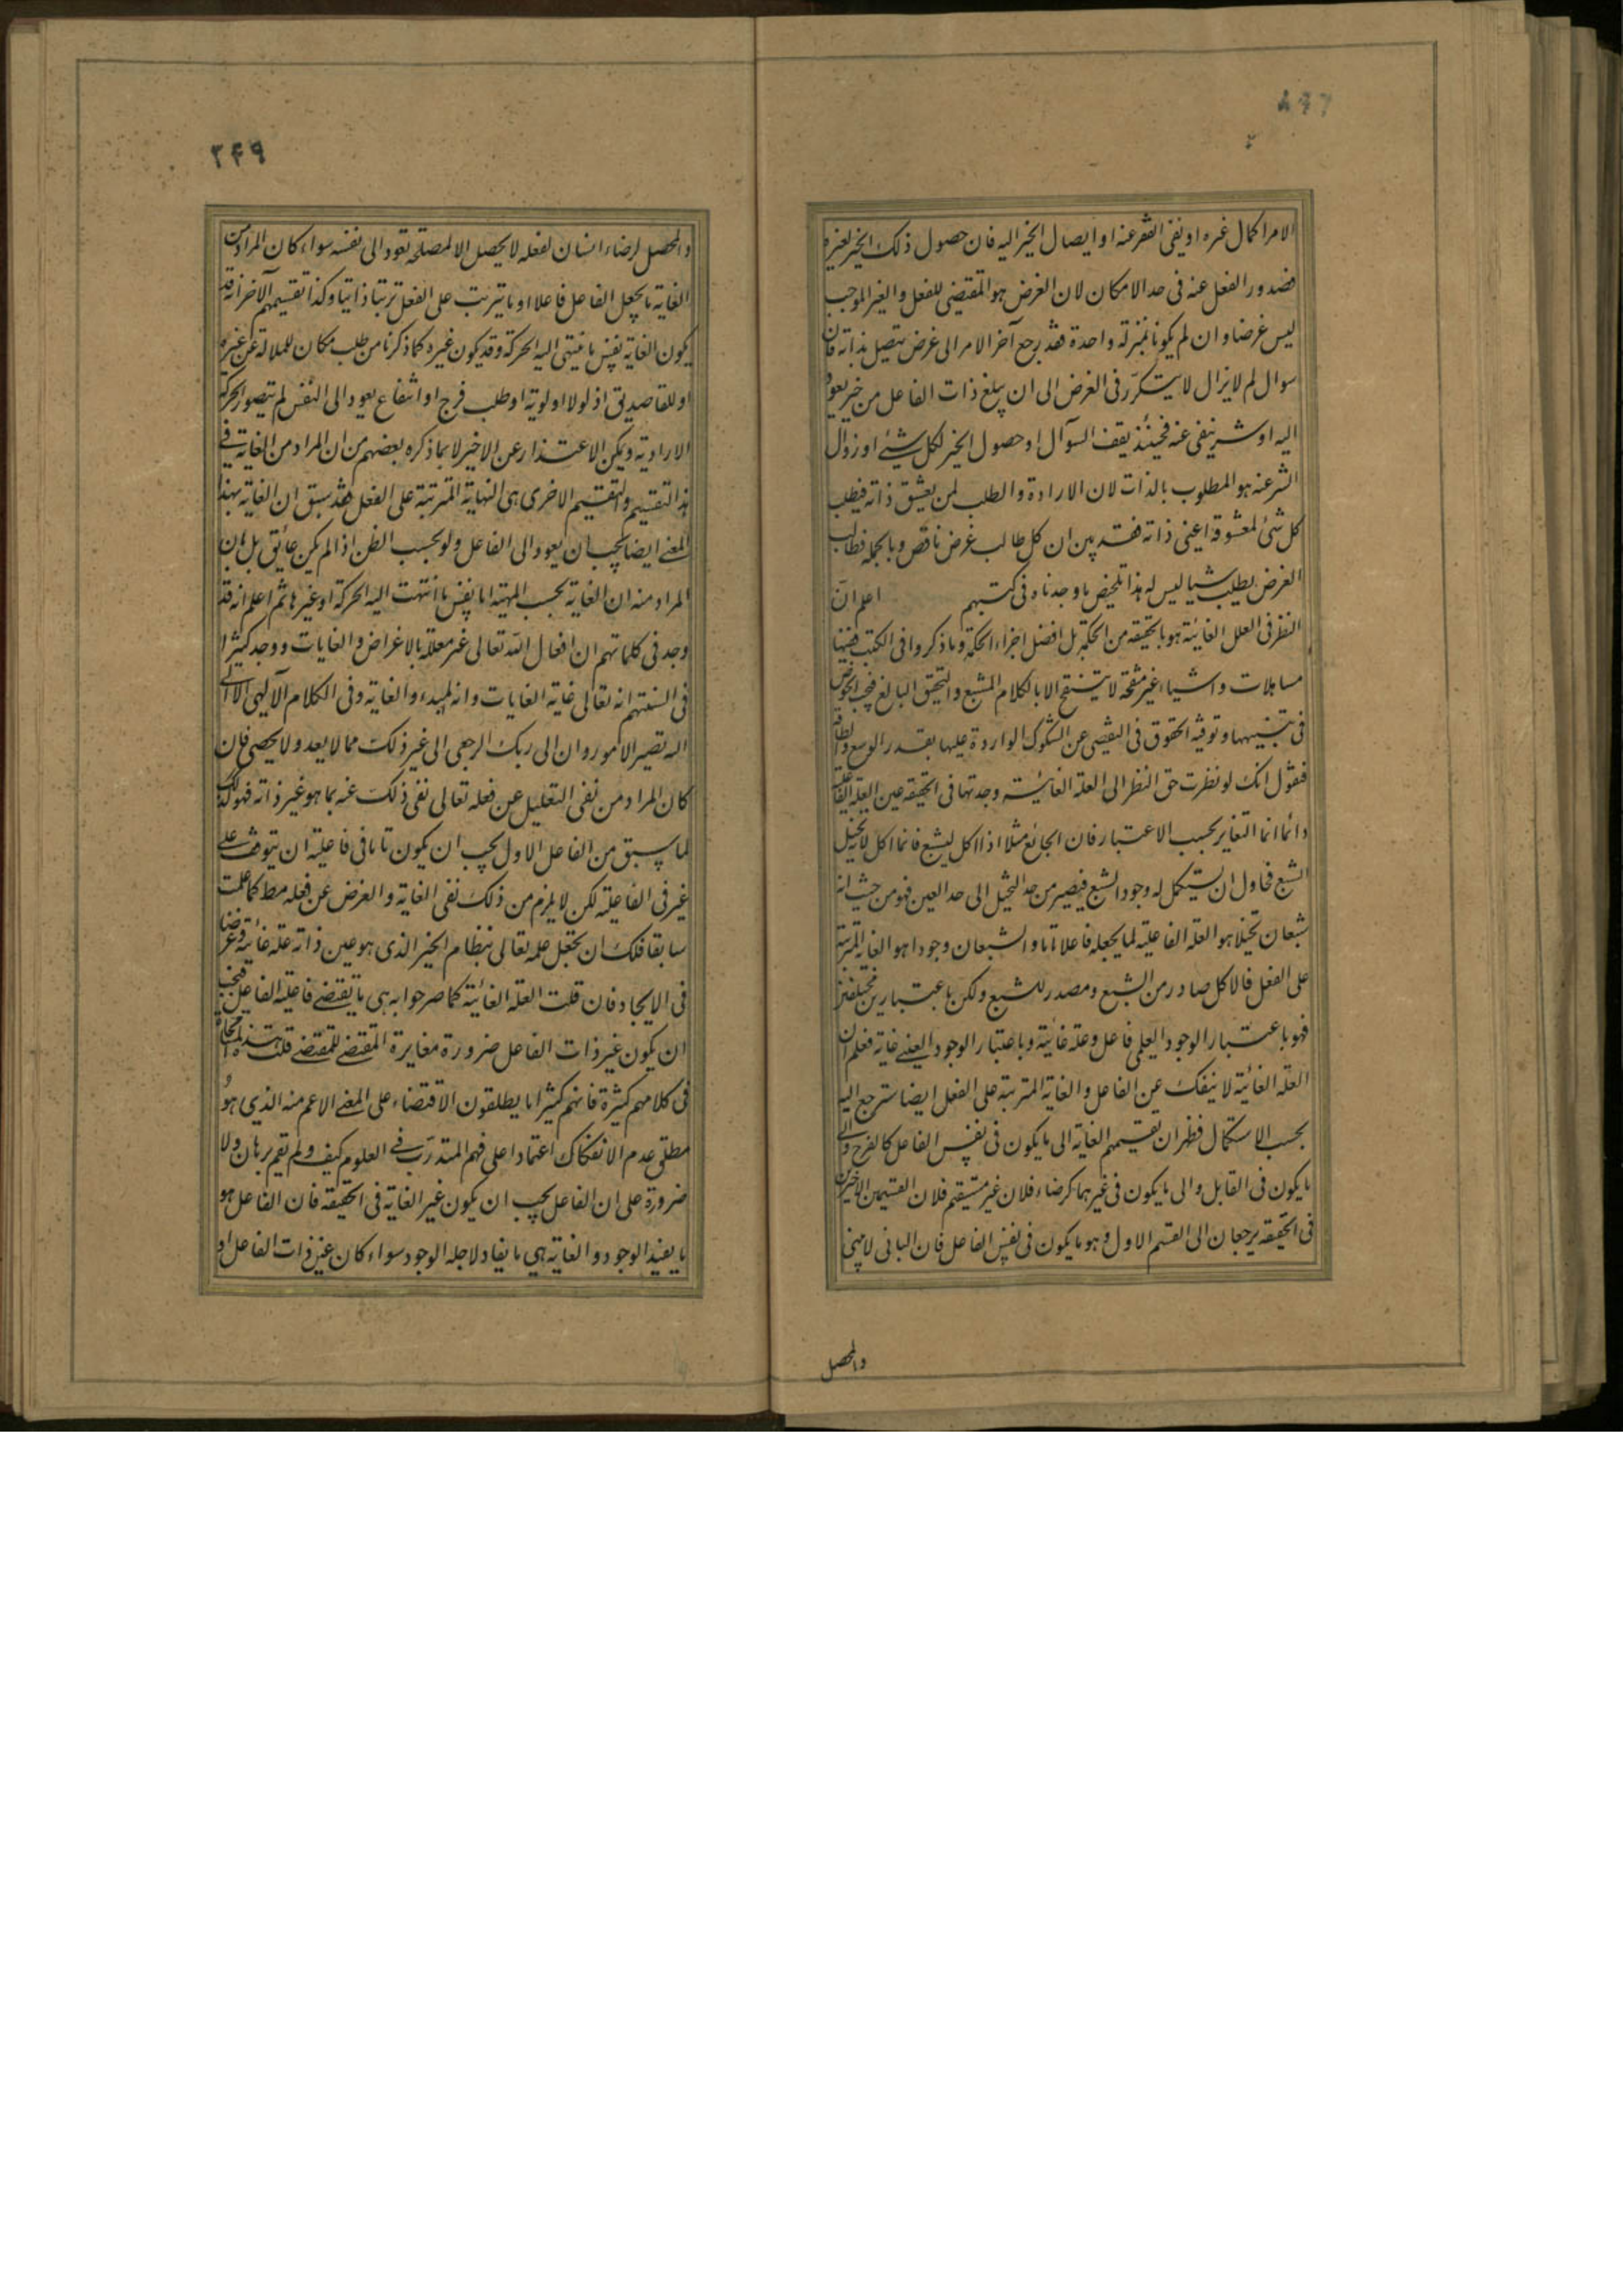 الامر اكمال غيره او نفى الفقر عنه او ايصال الخير اليه فان حصول ذلك الخير لغيره
فصدور الفعل عنه فى حد الامكان لان الغرض هو المقتضى للفعل والغير الموجب
ليس غرضا وان لم يكونا بمنزلة واحدة فقد رجع آخر الامر الى غرض يتصل بذاته فان
سوال لم لا يزال لا يتكرر فى الغرض الى ان يبلغ ذات الفاعل من خير يعود
اليه او شر ينفى عنه فحينئذ يقف السوال او حصول الخير لكل شئ او زوال
الشر عنه هو المطلوب بالذات لان الارادة والطلب لمن يعشق ذاته فيطلب
كل شئ لمعشوقه اعنى ذاته فقد بين ان كل طالب غرض ناقص وبالجملة فطالب
الغرض يطلب شيا ليس له هذا تلخيص ما وجدناه فى كتبهم اعلم ان
النظر فى العلل الغائية هو بالحقيقة من الحكمة بل افضل اجزاء الحكمة وما ذكروا فى الكتب ففيها
مساهلات واشياء غير منقحة لا يتنقح الا بالكلام المشبع والتحقيق البالغ فيجب الخوض
فى تبيينها وتوفية الحقوق فى التفصى عن الشكوك الواردة عليها بقدر الوسع والطاقة
فنقول انك لو نظرت حق النظر الى العلة الغائية وجدتها فى الحقيقة عين العلة الفاعلية
دائما انما التغاير بحسب الاعتبار فان الجائع مثلا اذا اكل ليشبع فانما اكل لانه تخيل
الشبع فحاول ان يستكمل له وجود الشبع فيصير من حد التخيل الى حد العين فهو من حيث انه
شبعان تخيلا هو العلة الفاعلية لما يجعله فاعلا تاما والشبعان وجودا هو الغاية المترتبة
على الفعل فالاكل صادر من الشبع ومصدر للشبع ولكن باعتبارين مختلفين
فهو باعتبار الوجود العلمى فاعل وعلة غائية وباعتبار الوجود العينى غاية فعلم ان
العلة الغائية لا ينفك عن الفاعل والغاية المترتبة على الفعل ايضا سترجع اليه
بحسب الاستكمال فظهر ان تقسيمهم الغاية الى ما يكون فى نفس الفاعل كالفرح والى
ما يكون فى القابل والى ما يكون فى غيرهما كرضاء فلان غير مستقيم فلان القسمين الاخيرين
فى الحقيقة يرجعان الى القسم الاول وهو ما يكون فى نفس الفاعل فان البانى لا يبنى
والمحصل
٣٤٩
والمحصل لرضاء انسان لفعله لا يحصل الا لمصلحة تعود الى نفسه سواء كان المراد من
الغاية ما يجعل الفاعل فاعلا او ما يترتب على الفعل ترتبا ذاتيا وكذا تقسيمهم الآخر انه قد
يكون الغاية نفس ما ينتهى اليه الحركة وقد يكون غيره كما ذكرنا من طلب مكان للملالة عن غيره
او للقا صديق اذ لولا اولوية او طلب فرح او انتفاع يعود الى النفس لم يتصور الحركة
الارادية ويمكن الاعتذار عن الاخير لا بما ذكره بعضهم من ان المراد من الغاية فى
هذا التقسيم والتقسيم الاخرى هى النهاية المترتبة على الفعل فقد سبق ان الغاية بهذا
المعنى ايضا يجب ان يعود الى الفاعل ولو بحسب الظن اذا لم يكن عائق بل بان
المراد منه ان الغاية بحسب المهية اما نفس ما انتهت اليه الحركة او غيرها ثم اعلم انه قد
وجد فى كلماتهم ان افعال الله تعالى غير معللة بالاغراض والغايات ووجد كثيرا
فى السنتهم انه تعالى غاية الغايات وانه المبدء والغاية وفى الكلام الآلهى الا الى
الله تصير الامور وان الى ربك الرجعى الى غير ذلك مما لا يعد ولا يحصى فان
كان المراد من نفى التعليل عن فعله تعالى نفى ذلك عنه بما هو غير ذاته فهو كذلك
لما سبق من الفاعل الاول يجب ان يكون تاما فى فاعليته ان يتوقف على
غير فى الفاعلية لكن لا يلزم من ذلك نفى الغاية والغرض عن فعله مط كما علمت
سابقا فلك ان تجعل علمه تعالى بنظام الخير الذى هو عين ذاته علة غائية وغرضا
فى الايجاد فان قلت العلة الغائية كما صرحوا به هى ما يقتضى فاعلية الفاعل فيجب
ان يكون غير ذات الفاعل ضرورة مغايرة المقتضى للمقتضى قلت هذه المسامحة
فى كلامهم كثيرة فانهم كثيرا ما يطلقون الاقتضاء على المعنى الاعم منه الذى هو
مطلق عدم الانفكاك اعتمادا على فهم المتدرب فى العلوم كيف ولم يقم برهان ولا
ضرورة على ان الفاعل يجب ان يكون غير الغاية فى الحقيقة فان الفاعل هو
ما يفيد الوجود والغاية هى ما يفاد لاجله الوجود سواء كان عين ذات الفاعل او